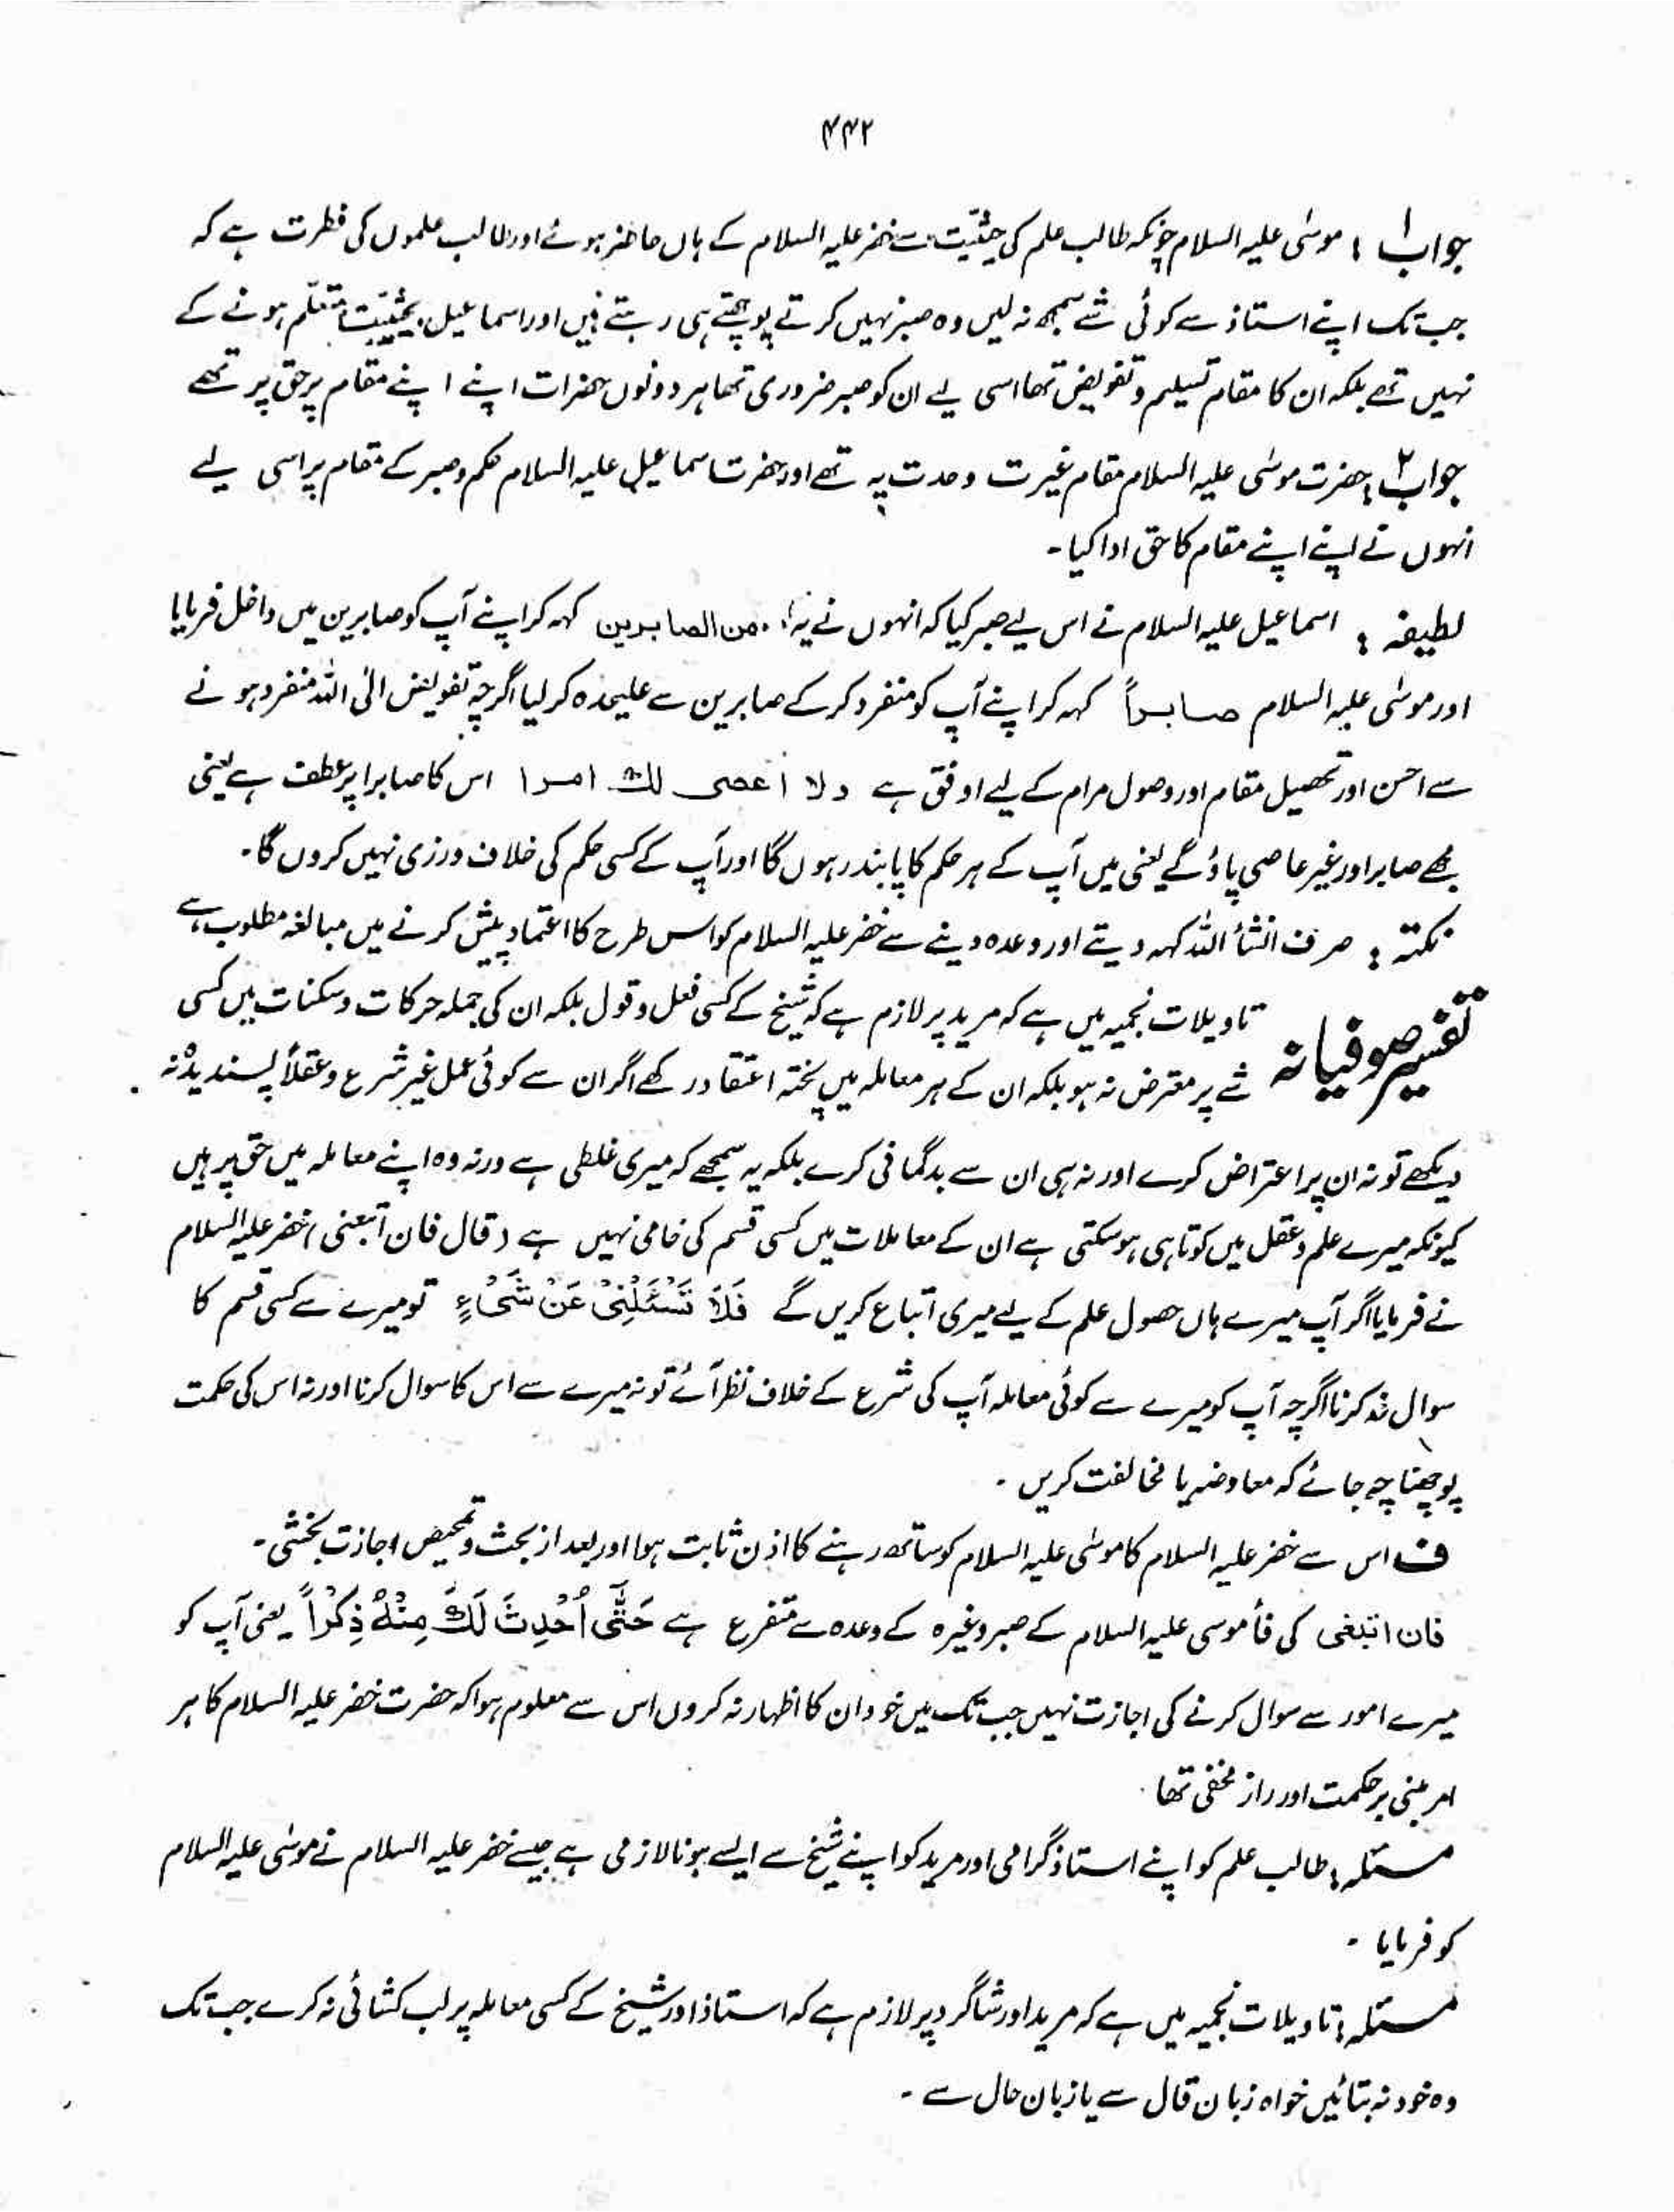 ۴۴۲
جواب۱ : موسٰی علیہ السلام چونکہ طالب علم کی حیثیت سے خضر علیہ السلام کے ہاں حاضر ہوئے اور طالب علموں کی فطرت ہے کہ
جب تک اپنے استاذ سے کوئی شے سمجھ نہ لیں وہ صبر نہیں کرتے پوچھتے ہی رہتے ہیں اور اسماعیل بحیثیت متعلم ہونے کے
نہیں تھے بلکہ ان کا مقام تسلیم و تفویض تھا اسی لیے ان کو صبر ضروری تھا ہر دونوں حضرات اپنے اپنے مقام پر حق پر تھے
جواب۲ : حضرت موسٰی علیہ السلام مقام غیرت وحدت پہ تھے اور حضرت اسماعیل علیہ السلام حکم و صبر کے مقام پر اسی لیے
انہوں نے اپنے اپنے مقام کا حق ادا کیا ۔
لطیفہ : اسماعیل علیہ السلام نے اس لیے صبر کیا کہ انہوں نے من الصابرین کہہ کر اپنے آپ کو صابرین میں داخل فرمایا
اور موسٰی علیہ السلام صابراً کہہ کر اپنے آپ کو منفرد کر کے صابرین سے علیحدہ کر لیا اگرچہ تفویض الی اللہ منفرد ہونے
سے احسن اور تحصیل مقام اور وصول مرام کے لیے اوفق ہے ولا اعصی لک امرا اس کا صابرا پر عطف ہے یعنی
مجھے صابر اور غیر عاصی پاؤ گے یعنی میں آپ کے ہر حکم کا پابند رہوں گا اور آپ کے کسی حکم کی خلاف ورزی نہیں کروں گا ۔
نکتہ : صرف انشأ اللہ کہہ دیتے اور وعدہ دینے سے خضر علیہ السلام کو اس طرح کا اعتماد پیش کرنے میں مبالغہ مطلوب ہے
تفسیر صوفیانہ تاویلات نجمیہ میں ہے کہ مرید پر لازم ہے کہ شیخ کے کسی فعل و قول بلکہ ان کی جملہ حرکات و سکنات میں کسی
شے پر معترض نہ ہو بلکہ ان کے ہر معاملہ میں پختہ اعتقاد رکھے اگر ان سے کوئی عمل غیر شرع و عقلاً پسندیدہ نہ
دیکھے تو نہ ان پر اعتراض کرے اور نہ ہی ان سے بدگمانی کرے بلکہ یہ سمجھے کہ میری غلطی ہے ورنہ وہ اپنے معاملہ میں حق پر ہیں
کیونکہ میرے علم و عقل میں کوتاہی ہو سکتی ہے ان کے معاملات میں کسی قسم کی خامی نہیں ہے (قال فان اتبعنی) خضر علیہ السلام
نے فرمایا اگر آپ میرے ہاں حصول علم کے لیے میری اتباع کریں گے فَلَا تَسْئَلْنِیْ عَنْ شَیْءٍ تو میرے سے کسی قسم کا
سوال نہ کرنا اگرچہ آپ کو میرے سے کوئی معاملہ آپ کی شرع کے خلاف نظر آئے تو نہ میرے سے اس کا سوال کرنا اور نہ اس کی حکمت
پوچھنا چہ جائے کہ معاوضہ یا مخالفت کریں ۔
ف اس سے خضر علیہ السلام کا موسٰی علیہ السلام کو ساتھ رہنے کا اذن ثابت ہوا اور بعد از بحث و تمحیص اجازت بخشی ۔
فان اتبغی کی فأ موسی علیہ السلام کے صبر وغیرہ کے وعدہ سے متفرع ہے حَتّٰی اُحْدِثَ لَکَ مِنْہُ ذِکْراً یعنی آپ کو
میرے امور سے سوال کرنے کی اجازت نہیں جب تک میں خود ان کا اظہار نہ کروں اس سے معلوم ہوا کہ حضرت خضر علیہ السلام کا ہر
امر مبنی بر حکمت اور راز مخفی تھا ۔
مسئلہ : طالب علم کو اپنے استاذ گرامی اور مرید کو اپنے شیخ سے ایسے ہونا لازمی ہے جیسے خضر علیہ السلام نے موسٰی علیہ السلام
کو فرمایا ۔
مسئلہ : تاویلات نجمیہ میں ہے کہ مرید اور شاگرد پر لازم ہے کہ استاذ اور شیخ کے کسی معاملہ پر لب کشائی نہ کرے جب تک
وہ خود نہ بتائیں خواہ زبان قال سے یا زبان حال سے ۔